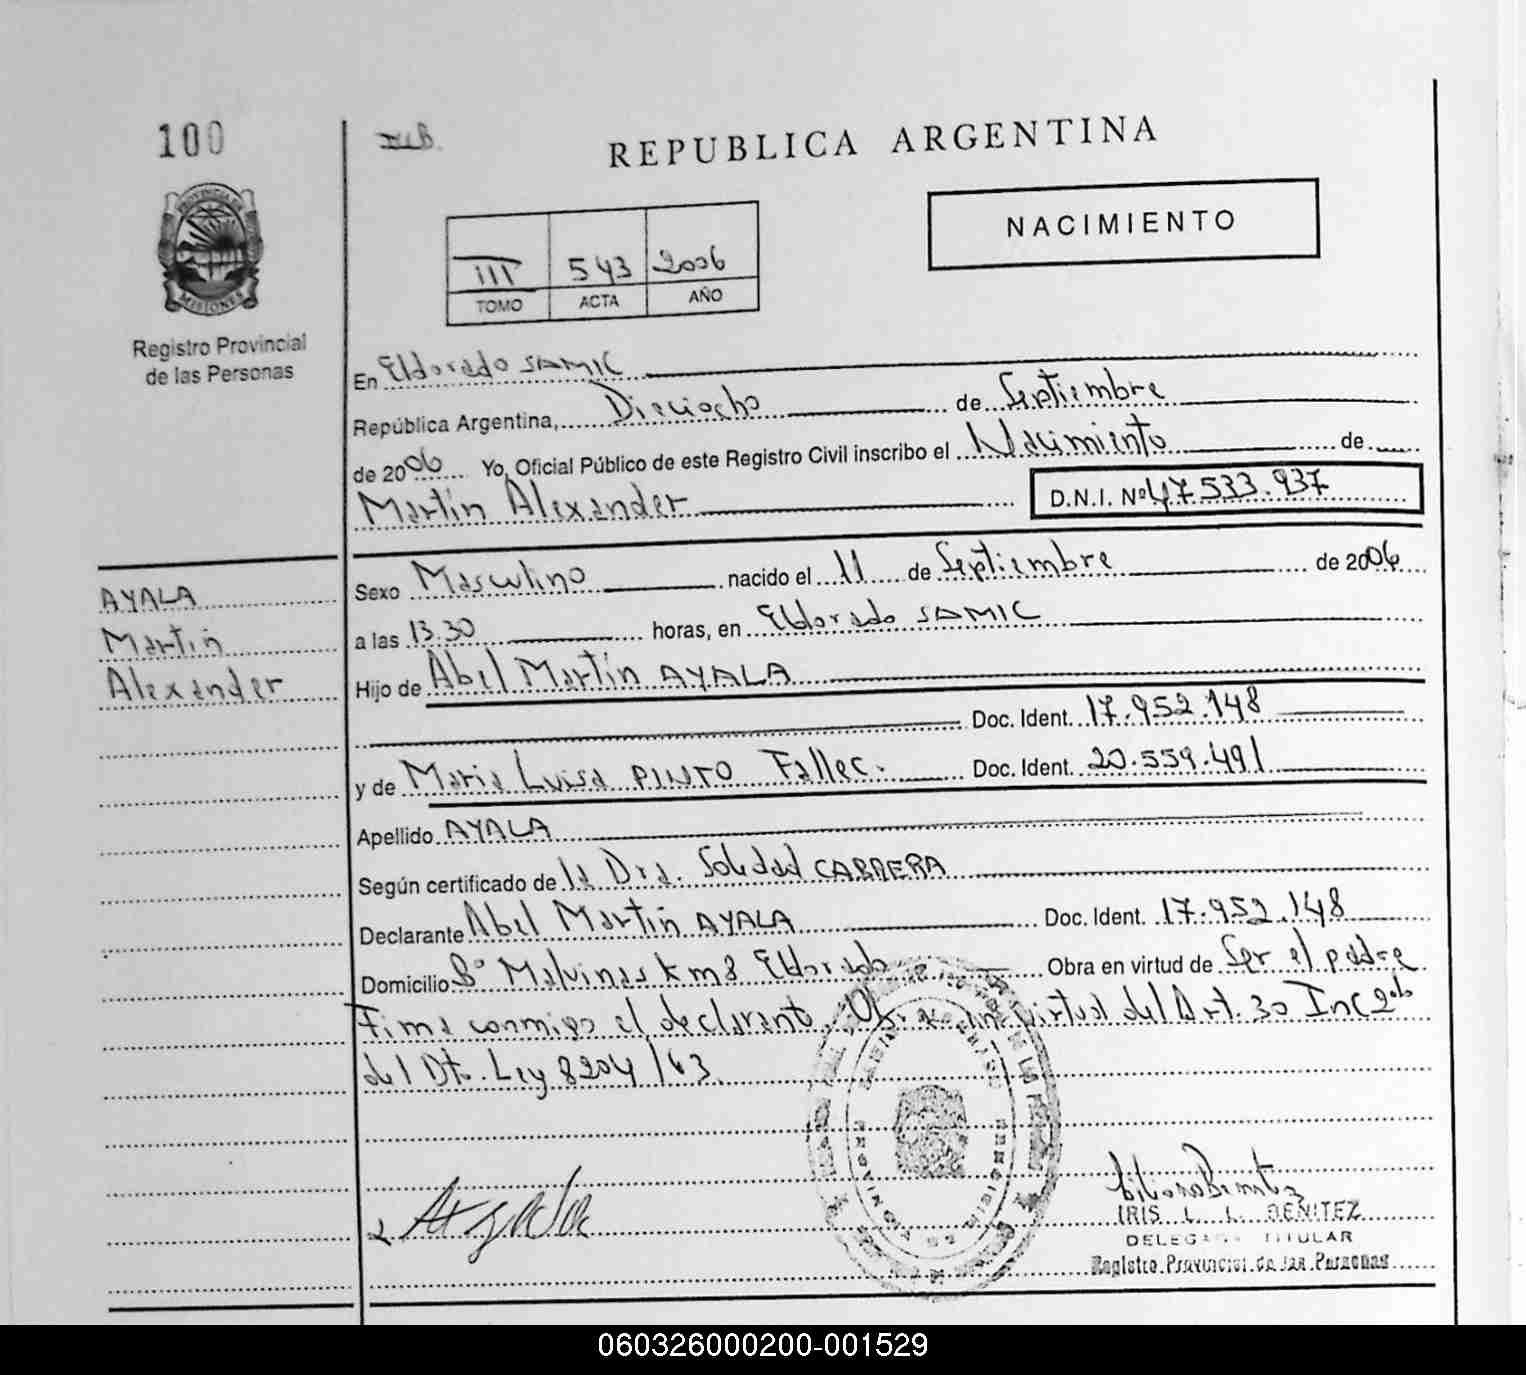 100
REPUBLICA ARGENTINA
NACIMIENTO
III 543 2006
TOMO ACTA AÑO
PROVINCIA DE
MISIONES
Registro Provincial
de las Personas
En Eldorado SAMIC
República Argentina, Dieciocho de Septiembre
de 2006 Yo, Oficial Público de este Registro Civil inscribo el Nacimiento de
Martín Alexander D.N.I. Nº 47.533.937
AYALA
Martín
Alexander
Sexo Masculino nacido el 11 de Septiembre de 2006
a las 13.30 horas, en Eldorado SAMIC
Hijo de Abel Martín AYALA
Doc. Ident. 17.952.148
y de Maria Luisa PINTO Fallec. Doc. Ident. 20.559.491
Apellido AYALA
Según certificado de la Dra. Soledad CABRERA
Declarante Abel Martín AYALA Doc. Ident. 17.952.148
Domicilio Bº Malvinas km 8 Eldorado Obra en virtud de Ser el padre
Firma conmigo el declarante. Obra en virtud del Art. 30 Inc 2do
del Dto. Ley 8204/63.
IRIS L. L. BENITEZ
DELEGADA TITULAR
Registro Provincial de las Personas
060326000200-001529